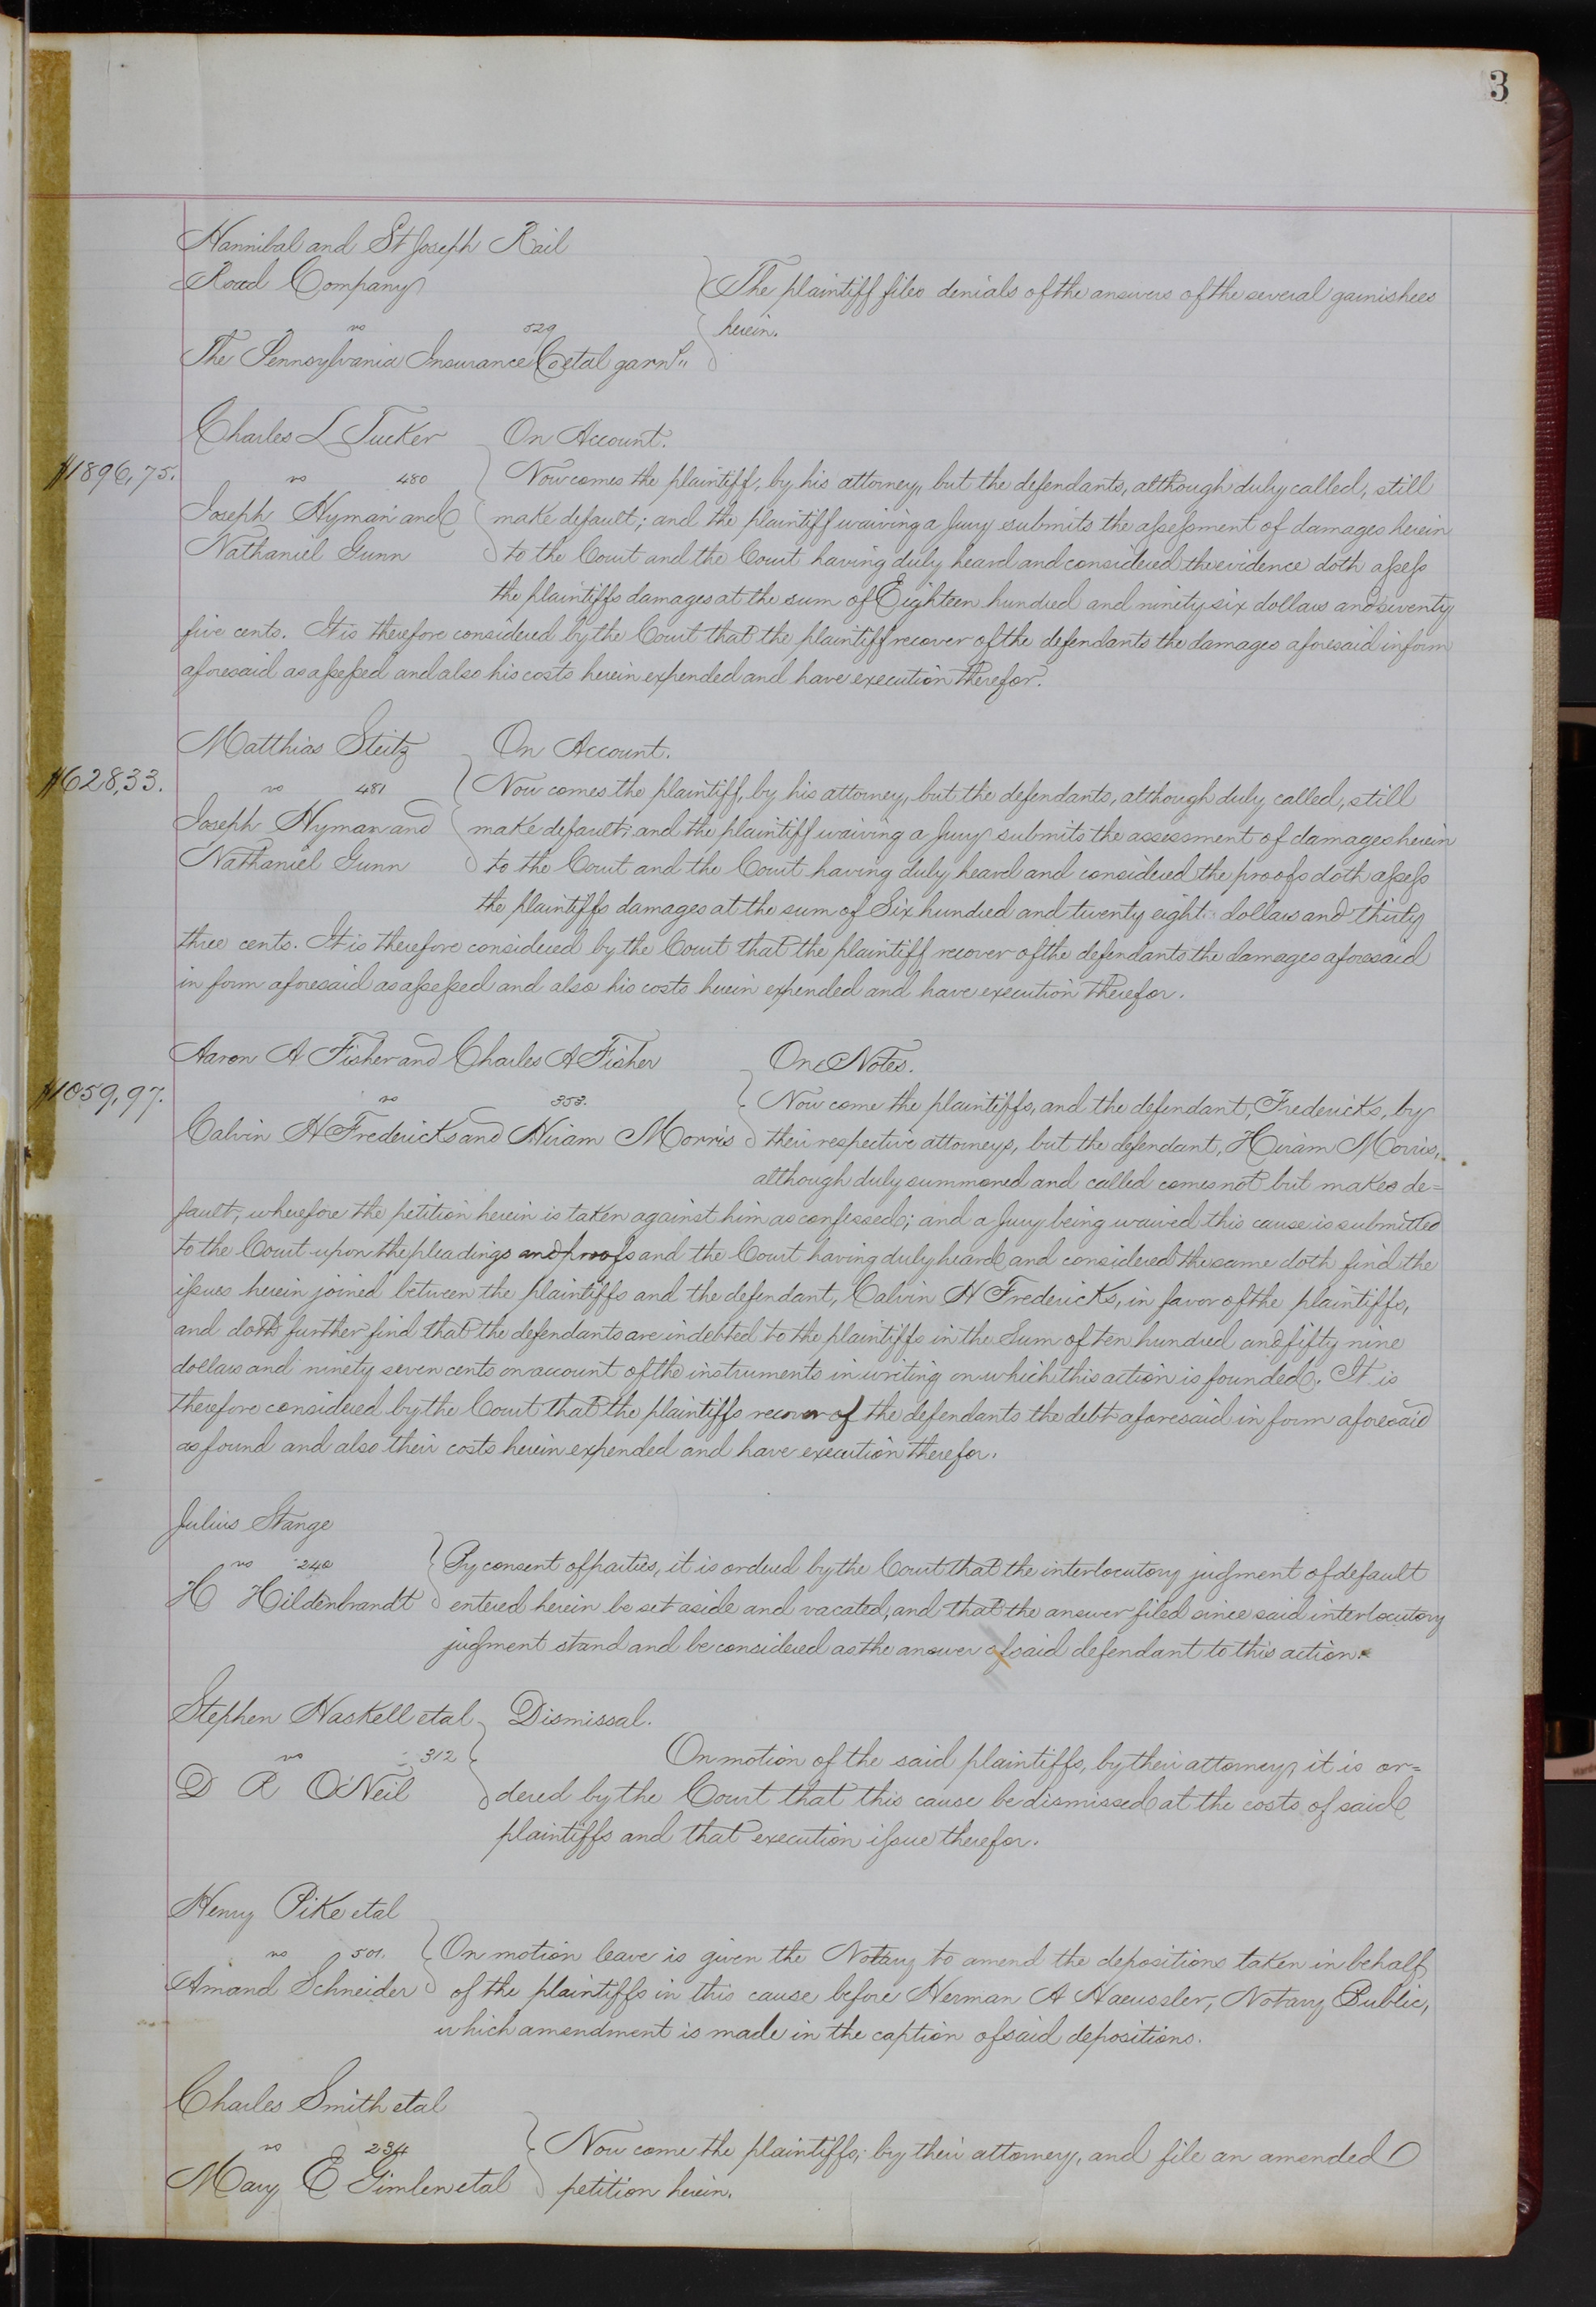 3
Hannibal and St Joseph Rail
Road Company
vs 529
The Pennsylvania Insurance Co etal garns
The plaintiff files denials of the answers of the several garnishees
herein.
Charles L Tucker
$1896,75.
vs 480
Joseph Hyman and
Nathaniel Gunn
On Account.
Now comes the plaintiff, by his attorney, but the defendants, although duly called, still
make default; and the plaintiff waiving a Jury submits the assessment of damages herein
to the Court and the Court having duly heard and considered the evidence doth assess
the plaintiffs damages at the sum of Eighteen hundred and ninety six dollars and seventy
five cents. It is therefore considered by the Court that the plaintiff recover of the defendants the damages aforesaid in form
aforesaid as assessed and also his costs herein expended and have execution therefor.
Matthias Steitz
$628,33.
vs 481
Joseph Hyman and
Nathaniel Gunn
On Account.
Now comes the plaintiff, by his attorney, but the defendants, although duly called, still
make default; and the plaintiff waiving a Jury submits the assessment of damages herein
to the Court and the Court having duly heard and considered the proofs doth assess
the plaintiffs damages at the sum of Six hundred and twenty eight dollars and thirty
three cents. It is therefore considered by the Court that the plaintiff recover of the defendants the damages aforesaid
in form aforesaid as assessed and also his costs herein expended and have execution therefor.
Aaron A Fisher and Charles A Fisher
$1059,97.
vs 353.
Calvin H Fredericks and Hiram Morris
On Notes.
Now come the plaintiffs, and the defendant, Fredericks, by
their respective attorneys, but the defendant, Hiram Morris,
although duly summoned and called comes not but makes de=
fault; wherefore the petition herein is taken against him as confessed; and a Jury being waived this cause is submitted
to the Court upon the pleadings and proofs and the Court having duly heard and considered the same doth find the
issues herein joined between the plaintiffs and the defendant, Calvin H Fredericks, in favor of the plaintiffs,
and doth further find that the defendants are indebted to the plaintiffs in the Sum of ten hundred and fifty nine
dollars and ninety seven cents on account of the instruments in writing on which this action is founded. It is
therefore considered by the Court that the plaintiffs recover of the defendants the debt aforesaid in form aforesaid
as found and also their costs herein expended and have execution therefor.
Julius Stange
vs 240
H Hildenbrandt
By consent of parties, it is ordered by the Court that the interlocutory judgment of default
entered herein be set aside and vacated, and that the answer filed since said interlocutory
judgment stand and be considered as the answer of said defendant to this action.
Stephen Haskell etal
vs 312
D R O'Neil
Dismissal.
On motion of the said plaintiffs, by their attorney, it is or=
dered by the Court that this cause be dismissed at the costs of said
plaintiffs and that execution issue therefor.
Henry Pike etal
vs 501.
Amand Schneider
On motion leave is given the Notary to amend the depositions taken in behalf
of the plaintiffs in this cause before Herman A Haeussler, Notary Public,
which amendment is made in the caption of said depositions.
Charles Smith etal
vs 234
Mary E Gimlen etal
Now come the plaintiffs, by their attorney, and file an amended
petition herein.